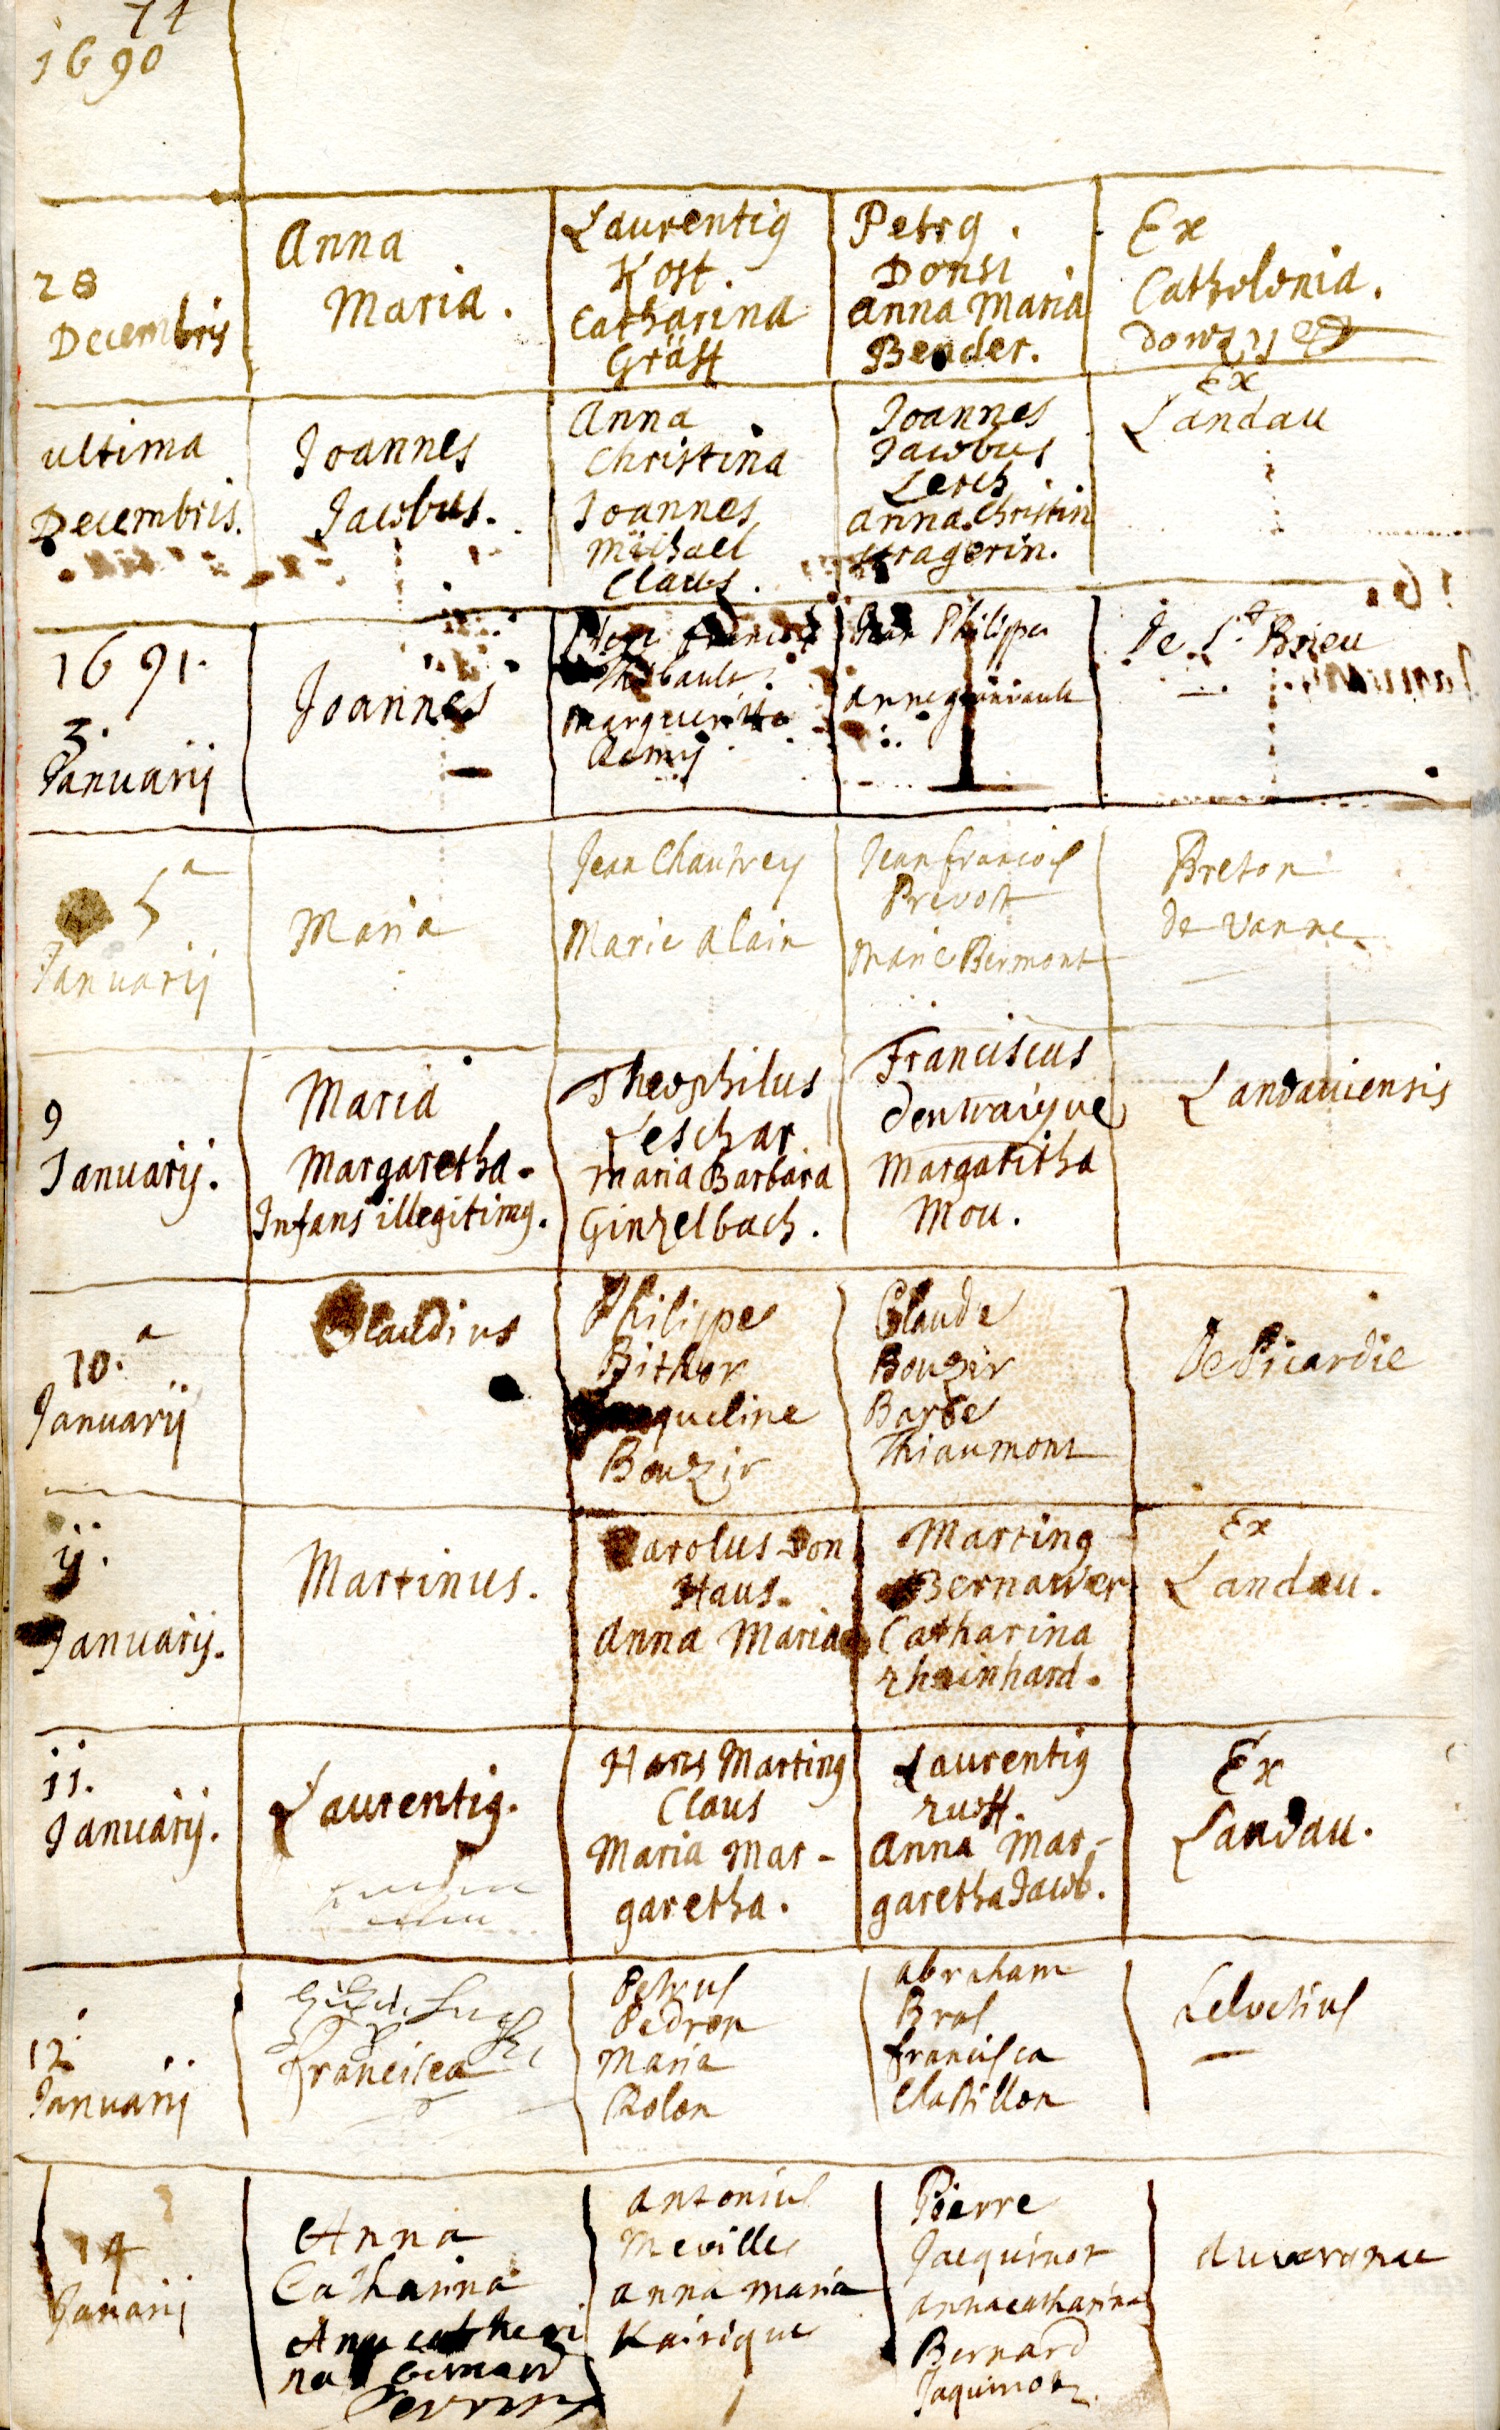 74
1690
28
Decembris
Anna
Maria.
Laurentig
Kost.
Catharina
Gräff
Petrg.
Donsi
Anna Maria
Bender.
Ex
Catholonia.
ultima
Decembris.
Joannes
Jacobus.
Anna
Christina
Joannes
Michael
Claus.
Joannes
Jacobus
Lerch
Anna Christin
Ex
Landau
1691.
3.
Januarij
Joannes
francois
Thibault
margueritte
Remij
Jean Philippes
anne
De St. Brieu
5a
Januarij
Maria
Jean Chauvrey
Marie alain
Jean francois
Prevost
Marie Bermont
Breton
de Vanne
9
Januarij.
Maria
Margaretha.
Infans illegitimg.
Theophilus
Leschar
Maria Barbara
Ginzelbach.
Franciscus
Margaritha
Mou.
Landauiensis
10.a
Januarij
Claudius
Philippes
Bithor
Jacqueline
Bouzir
Claude
Bouzir
Barbe
Thiaumont
De Picardie
ij.
Januarij.
Martinus.
Carolus Von
Haus.
Anna Maria
Marting
Bernauer
Catharina
Rheinhard.
Ex
Landau.
11.
Januarij.
Laurentig.
Hans Marting
Claus
Maria Mar-
garetha.
Laurentig
ruoff.
Anna Mar-
garetha Jacob.
Ex
Landau.
12
Januarij
francisca
Petrus
Pedron
Maria
Rolon
abraham
Bras
francisca
Chastillon
Helvetius
14
Januarij
Anna
Catharina
Anne catheri
na bernard
antonius
Meville
anna maria
Kairique
Pierre
Jacquinot
anna catharina
Bernard
Jaquinot.
Auvergne